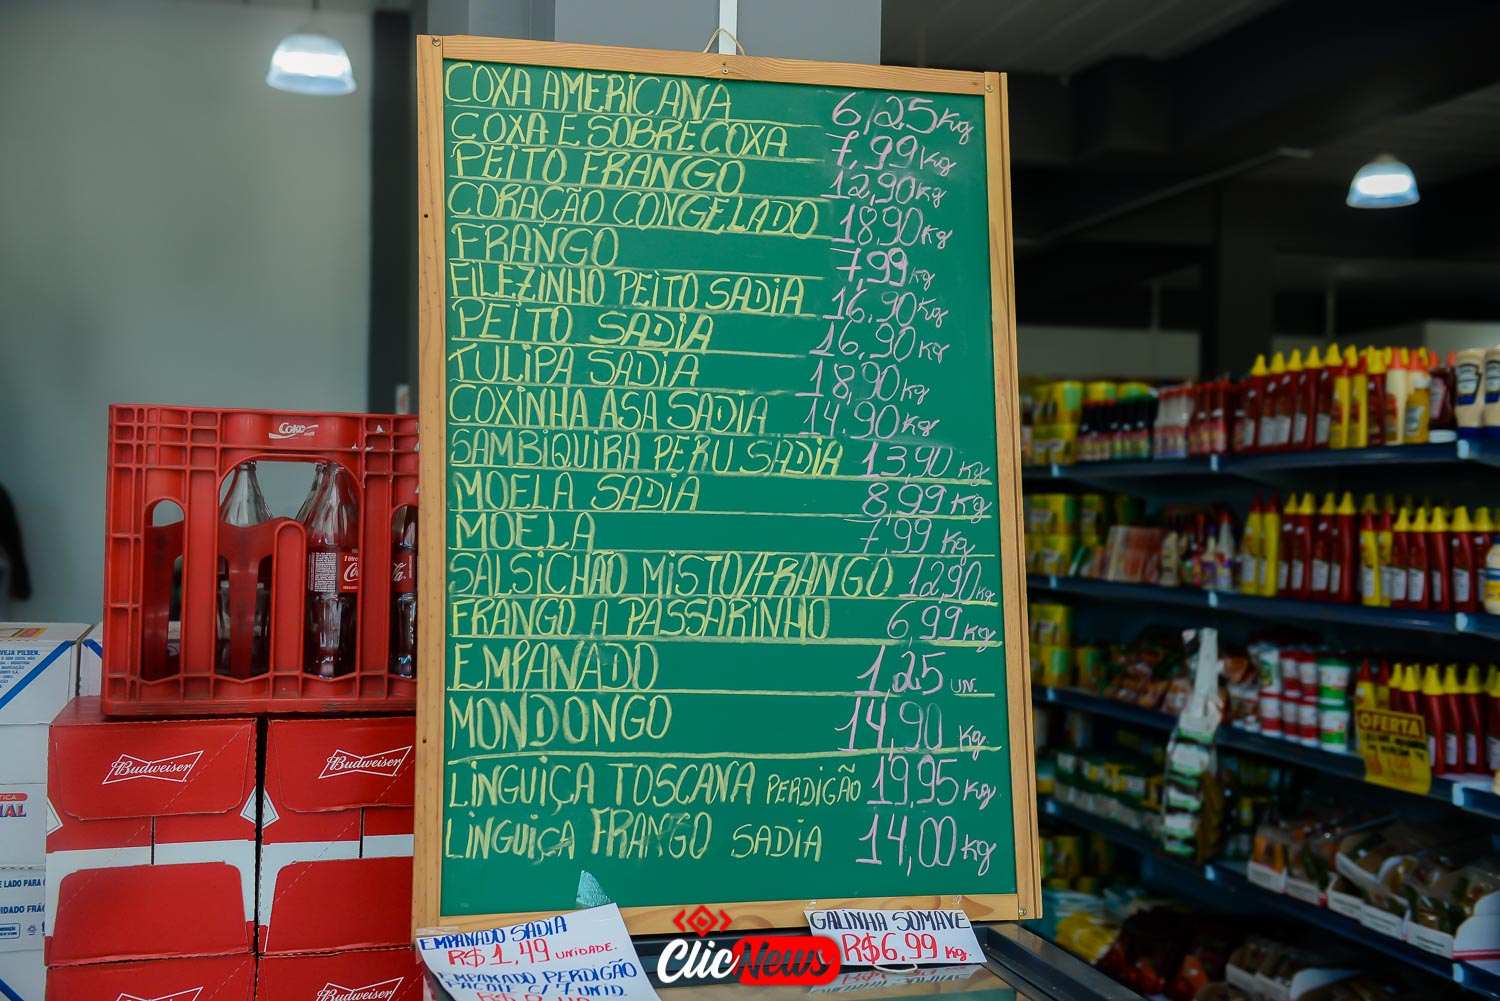 COXA AMERICANA 6,25 Kg
COXA E SOBRECOXA 7,99 Kg
PEITO FRANGO 12,90 Kg
CORAÇÃO CONGELADO 18,90 Kg
FRANGO 7,99 Kg
FILEZINHO PEITO SADIA 16,90 Kg
PEITO SADIA 16,90 Kg
TULIPA SADIA 18,90 Kg
COXINHA ASA SADIA 14,90 Kg
SAMBIQUIRA PERU SADIA 13,90 Kg
MOELA SADIA 8,99 Kg
MOELA 7,99 Kg
SALSICHÃO MISTO/FRANGO 12,90 Kg
FRANGO A PASSARINHO 6,99 Kg
EMPANADO 1,25 UN.
MONDONGO 14,90 Kg
LINGUIÇA TOSCANA PERDIGÃO 19,95 Kg
LINGUIÇA FRANGO SADIA 14,00 Kg
EMPANADO SADIA
R$ 1,49 UNIDADE.
EMPANADO PERDIGÃO
PACOTE C/ 7 UNID.
GALINHA SOMAVE
R$6,99 Kg.
ClicNews
Coke
1 litro
Budweiser
Budweiser
Budweiser
Budweiser
VEJA PILSEN.
OFERTA